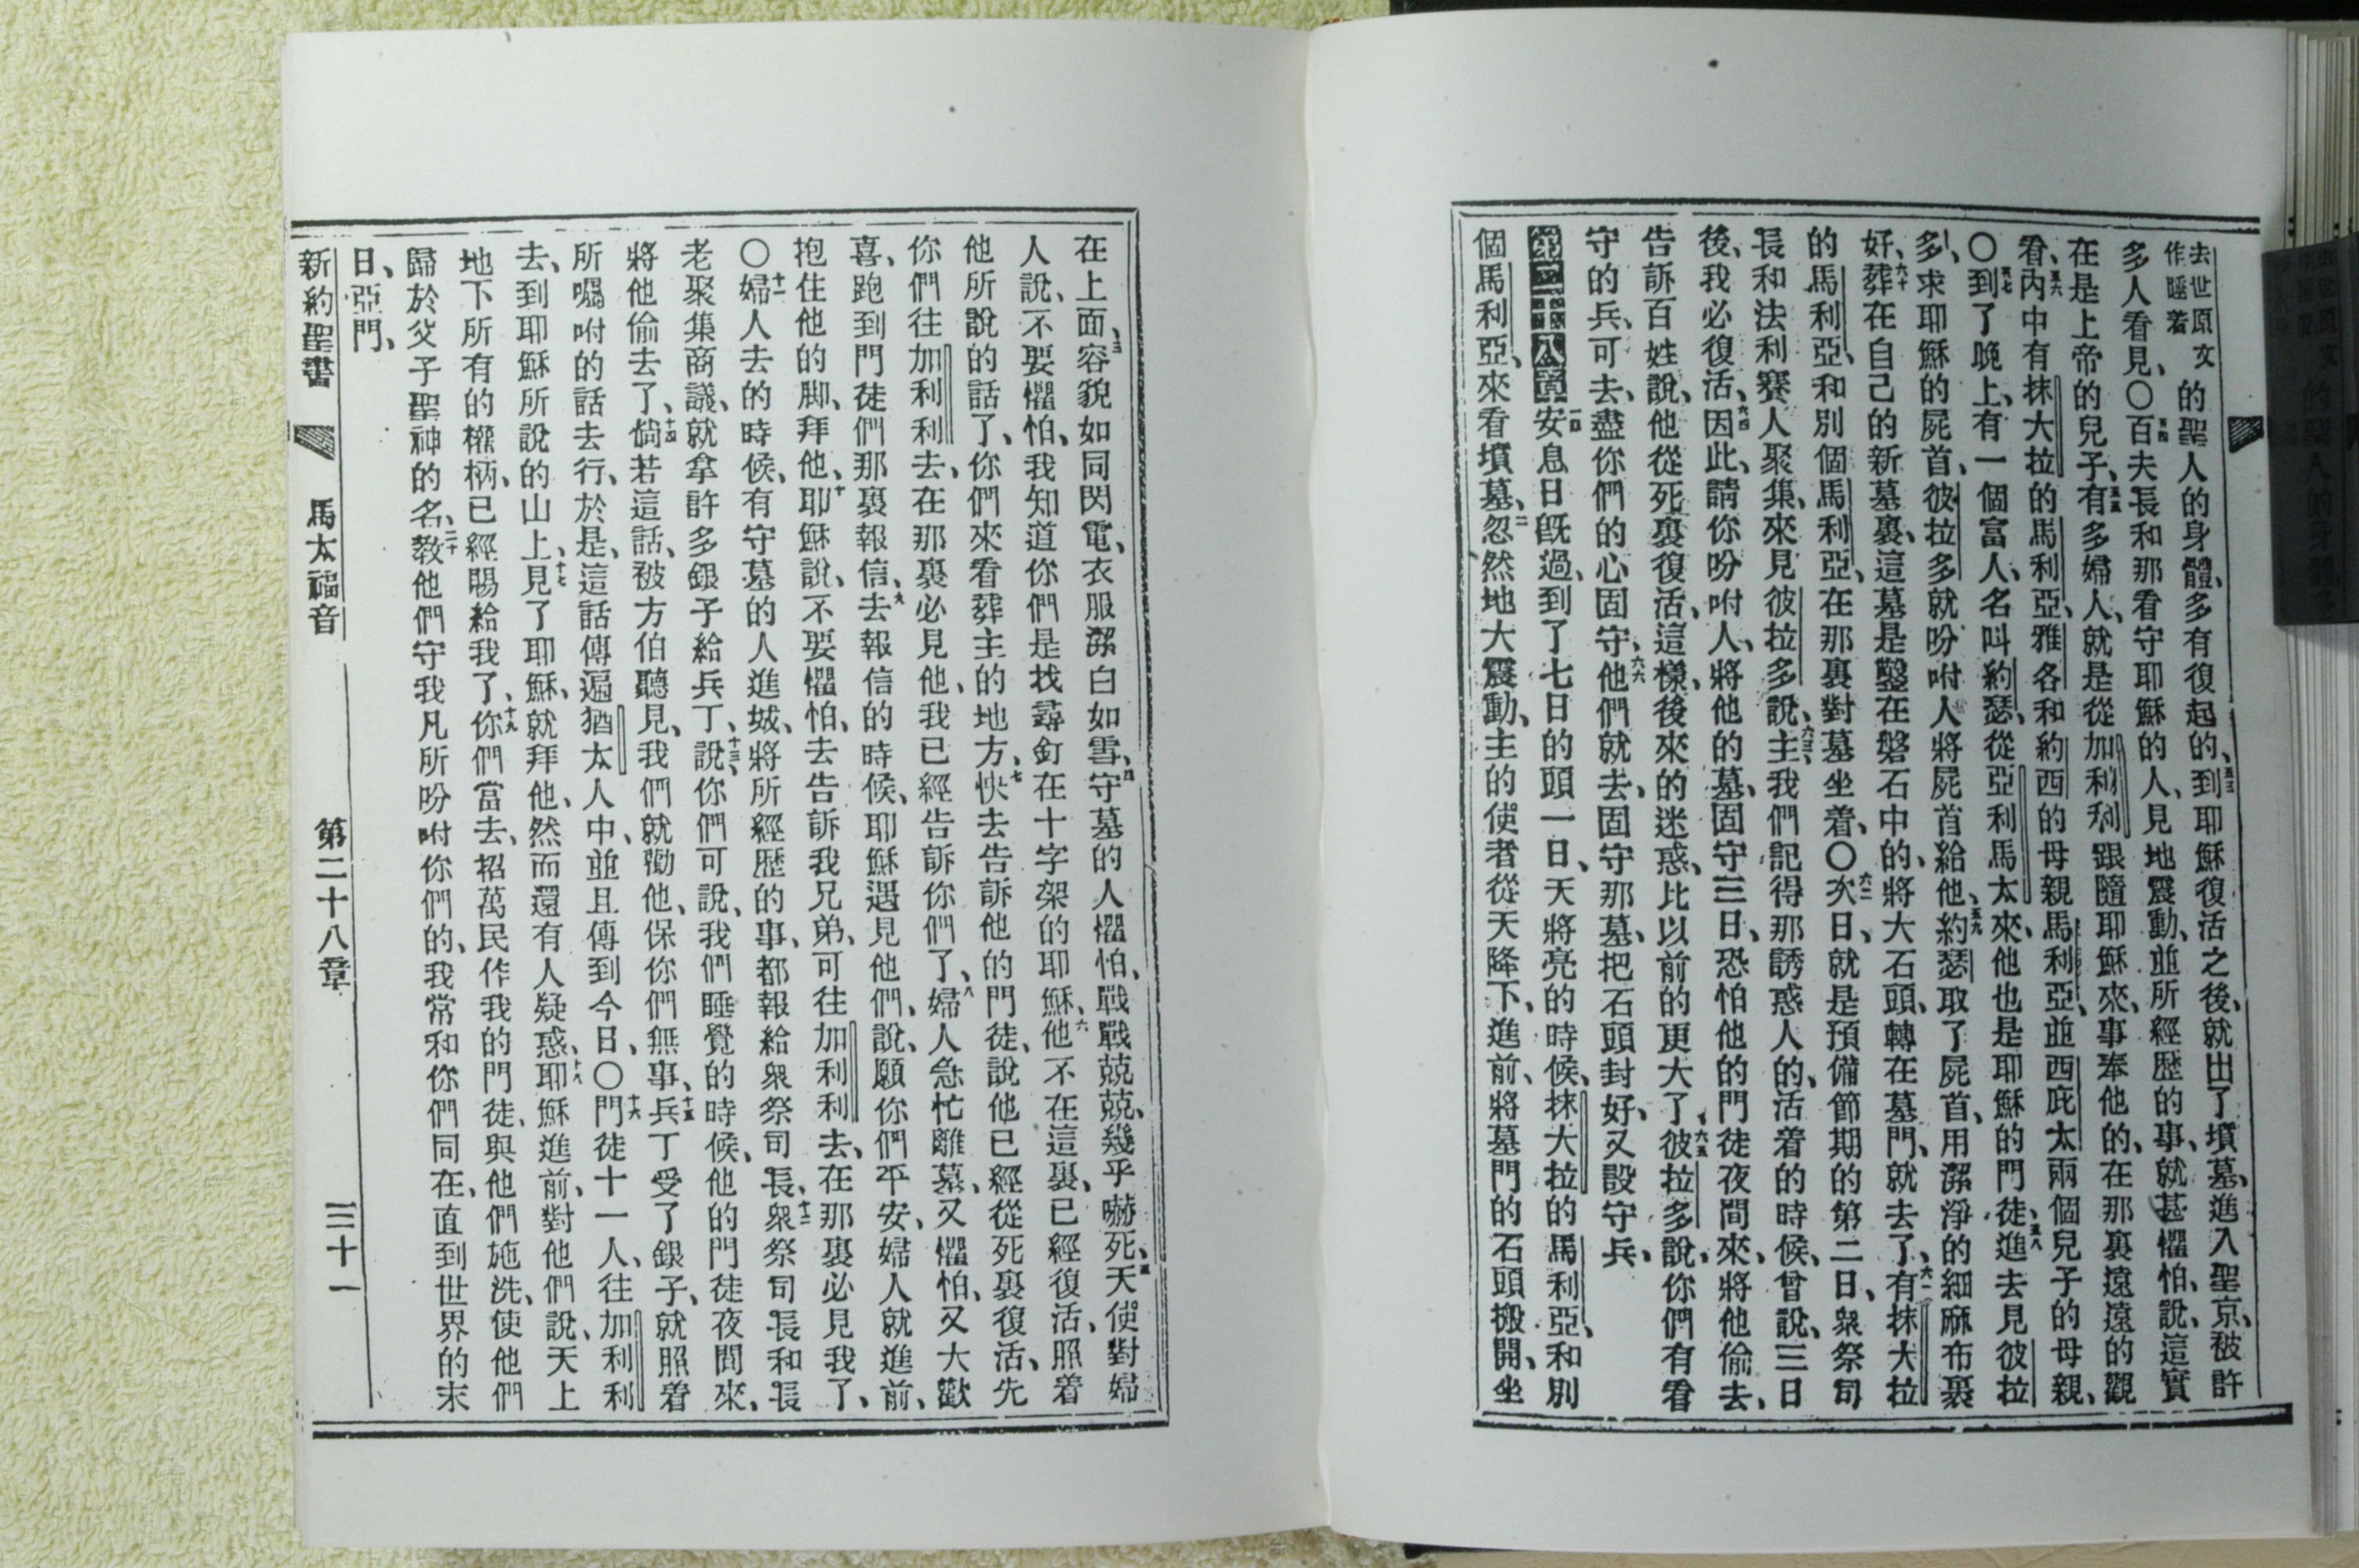 去世原文
作睡着
的聖人的身體、多有復起的、五三到耶穌復活之後、就出了墳墓、進入聖京、被許
多人看見、〇五四百夫長和那看守耶穌的人、見地震動、並所經歷的事、就甚懼怕、說、這實
在是上帝的兒子、五五有多婦人、就是從加利利跟隨耶穌來、事奉他的、在那裏遠遠的觀
看、五六內中有抹大拉的馬利亞、雅各和約西的母親馬利亞、並西庇太兩個兒子的母親、
〇五七到了晚上、有一個富人、名叫約瑟、從亞利馬太來、他也是耶穌的門徒、五八進去見彼拉
多、求耶穌的屍首、彼拉多就吩咐人將屍首給他、五九約瑟取了屍首、用潔淨的細麻布裹
好、六十葬在自己的新墓裏、這墓是鑿在磐石中的、將大石頭、轉在墓門、就去了、六一有抹大拉
的馬利亞、和別個馬利亞、在那裏對墓坐着、〇六二次日、就是預備節期的第二日、衆祭司
長和法利賽人聚集、來見彼拉多說、六三主、我們記得那誘惑人的、活着的時候、曾說、三日
後、我必復活、六四因此、請你吩咐人、將他的墓、固守三日、恐怕他的門徒夜間來、將他偷去、
告訴百姓說、他從死裏復活、這樣、後來的迷惑、比以前的更大了、六五彼拉多說、你們有看
守的兵、可去、盡你們的心固守、六六他們就去、固守那墓、把石頭封好、又設守兵、
第二十八章一安息日旣過、到了七日的頭一日、天將亮的時候、抹大拉的馬利亞、和別
個馬利亞、來看墳墓、二忽然地大震動、主的使者從天降下、進前、將墓門的石頭搬開、坐
在上面、三容貌如同閃電、衣服潔白如雪、四守墓的人懼怕、戰戰兢兢、幾乎嚇死、五天使對婦
人說、不要懼怕、我知道你們是找尋釘在十字架的耶穌、六他不在這裏、已經復活、照着
他所說的話了、你們來看葬主的地方、七快去告訴他的門徒、說他已經從死裏復活、先
你們往加利利去、在那裏必見他、我已經告訴你們了、八婦人急忙離墓、又懼怕、又大歡
喜、跑到門徒們那裏報信、九去報信的時候、耶穌遇見他們、說、願你們平安、婦人就進前、
抱住他的脚、拜他、十耶穌說、不要懼怕、去告訴我兄弟、可往加利利去、在那裏必見我了、
〇十一婦人去的時候、有守墓的人進城、將所經歷的事、都報給衆祭司長、十二衆祭司長和長
老聚集商議、就拿許多銀子給兵丁、十三說、你們可說、我們睡覺的時候、他的門徒夜間來、
將他偷去了、十四倘若這話、被方伯聽見、我們就勸他、保你們無事、十五兵丁受了銀子、就照着
所囑咐的話去行、於是、這話傳遍猶太人中、並且傳到今日、〇十六門徒十一人、往加利利
去、到耶穌所說的山上、十七見了耶穌、就拜他、然而還有人疑惑、十八耶穌進前、對他們說、天上
地下所有的權柄、已經賜給我了、十九你們當去、招萬民作我的門徒、與他們施洗、使他們
歸於父子聖神的名、二十敎他們守我凡所吩咐你們的、我常和你們同在、直到世界的末
日、亞門、
新約聖書 馬太福音 第二十八章 三十一